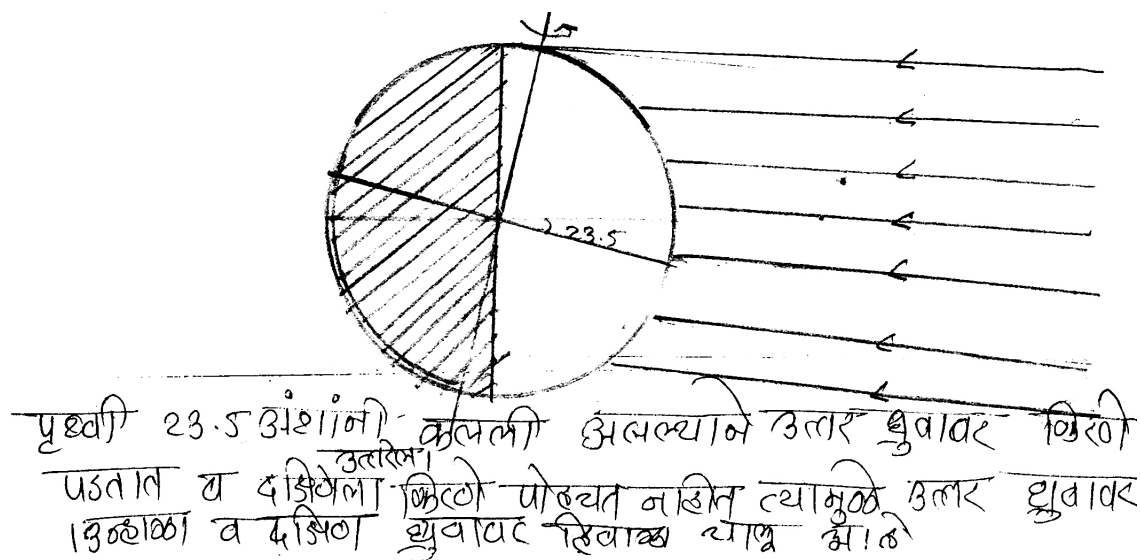 23.5
पृथ्वी 23.5 अंशांनी कलली असल्याने उत्तर ध्रुवावर किरणे
पडतात व दक्षिणेला किरणे पोहचत नाहीत त्यामुळे उत्तर ध्रुवावर
उन्हाळा व दक्षिण ध्रुवावर हिवाळा चालू आहे